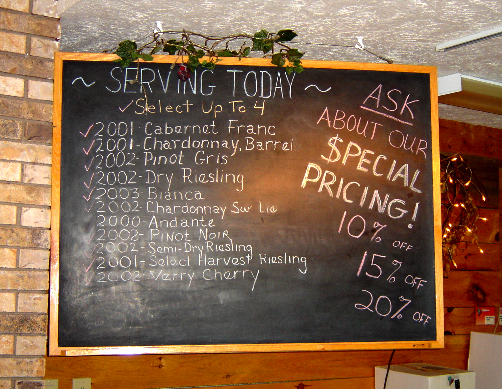 ~ SERVING TODAY ~
✓ Select Up To 4
✓ 2001 - Cabernet Franc
✓ 2001 - Chardonnay, Barrel
✓ 2002 - Pinot Gris
✓ 2002 - Dry Riesling
✓ 2003 Bianca
✓ 2002 - Chardonnay Sur Lie
2000 - Andante
2002 - Pinot Noir
✓ 2002 - Semi-Dry Riesling
✓ 2001 - Select Harvest Riesling
✓ 2002 - Merry Cherry
ASK
ABOUT OUR
$PECIAL
PRICING!
10% OFF
15% OFF
20% OFF